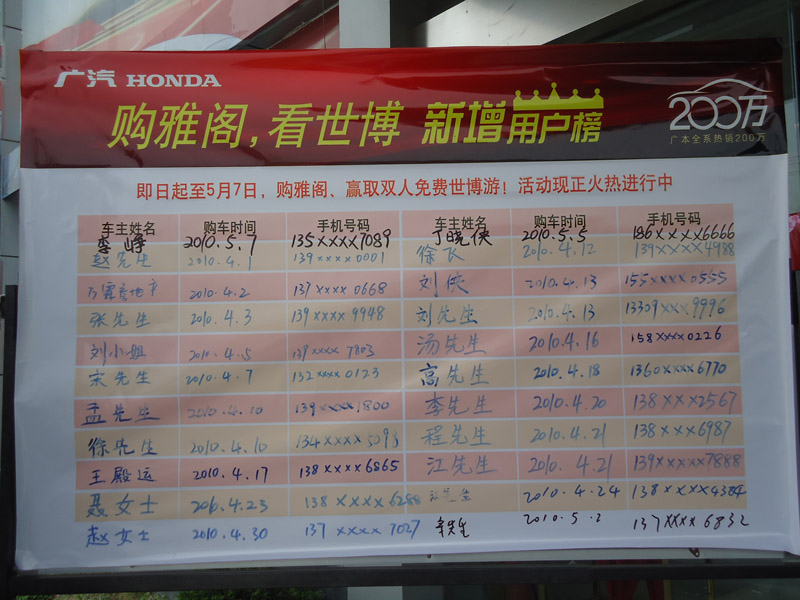 广汽 HONDA
购雅阁，看世博 新增用户榜
200万
广本全系热销200万
即日起至5月7日，购雅阁、赢取双人免费世博游！活动现正火热进行中
车主姓名 购车时间 手机号码 车主姓名 购车时间 手机号码
李峥 2010.5.7 135××××7089 丁晓侠 2010.5.5 186××××6666
赵先生 2010.4.1 139××××0001 徐飞 2010.4.12 139××××4988
万霖房地产 2010.4.2 137××××0668 刘侠 2010.4.13 155××××0555
张先生 2010.4.3 139××××9948 刘先生 2010.4.13 13309××××9996
刘小姐 2010.4.5 139××××7803 汤先生 2010.4.16 158××××0226
宋先生 2010.4.7 132××××0123 高先生 2010.4.18 1360××××6770
孟先生 2010.4.10 139××××1800 李先生 2010.4.20 138×××2567
徐先生 2010.4.10 134××××509 程先生 2010.4.21 138×××6987
王殿运 2010.4.17 138××××6865 江先生 2010.4.21 139××××7888
聂女士 2010.4.23 138××××6288 先生 2010.4.24 138××××4384
赵女士 2010.4.30 137××××7027 辛先生 2010.5.2 137××××6832